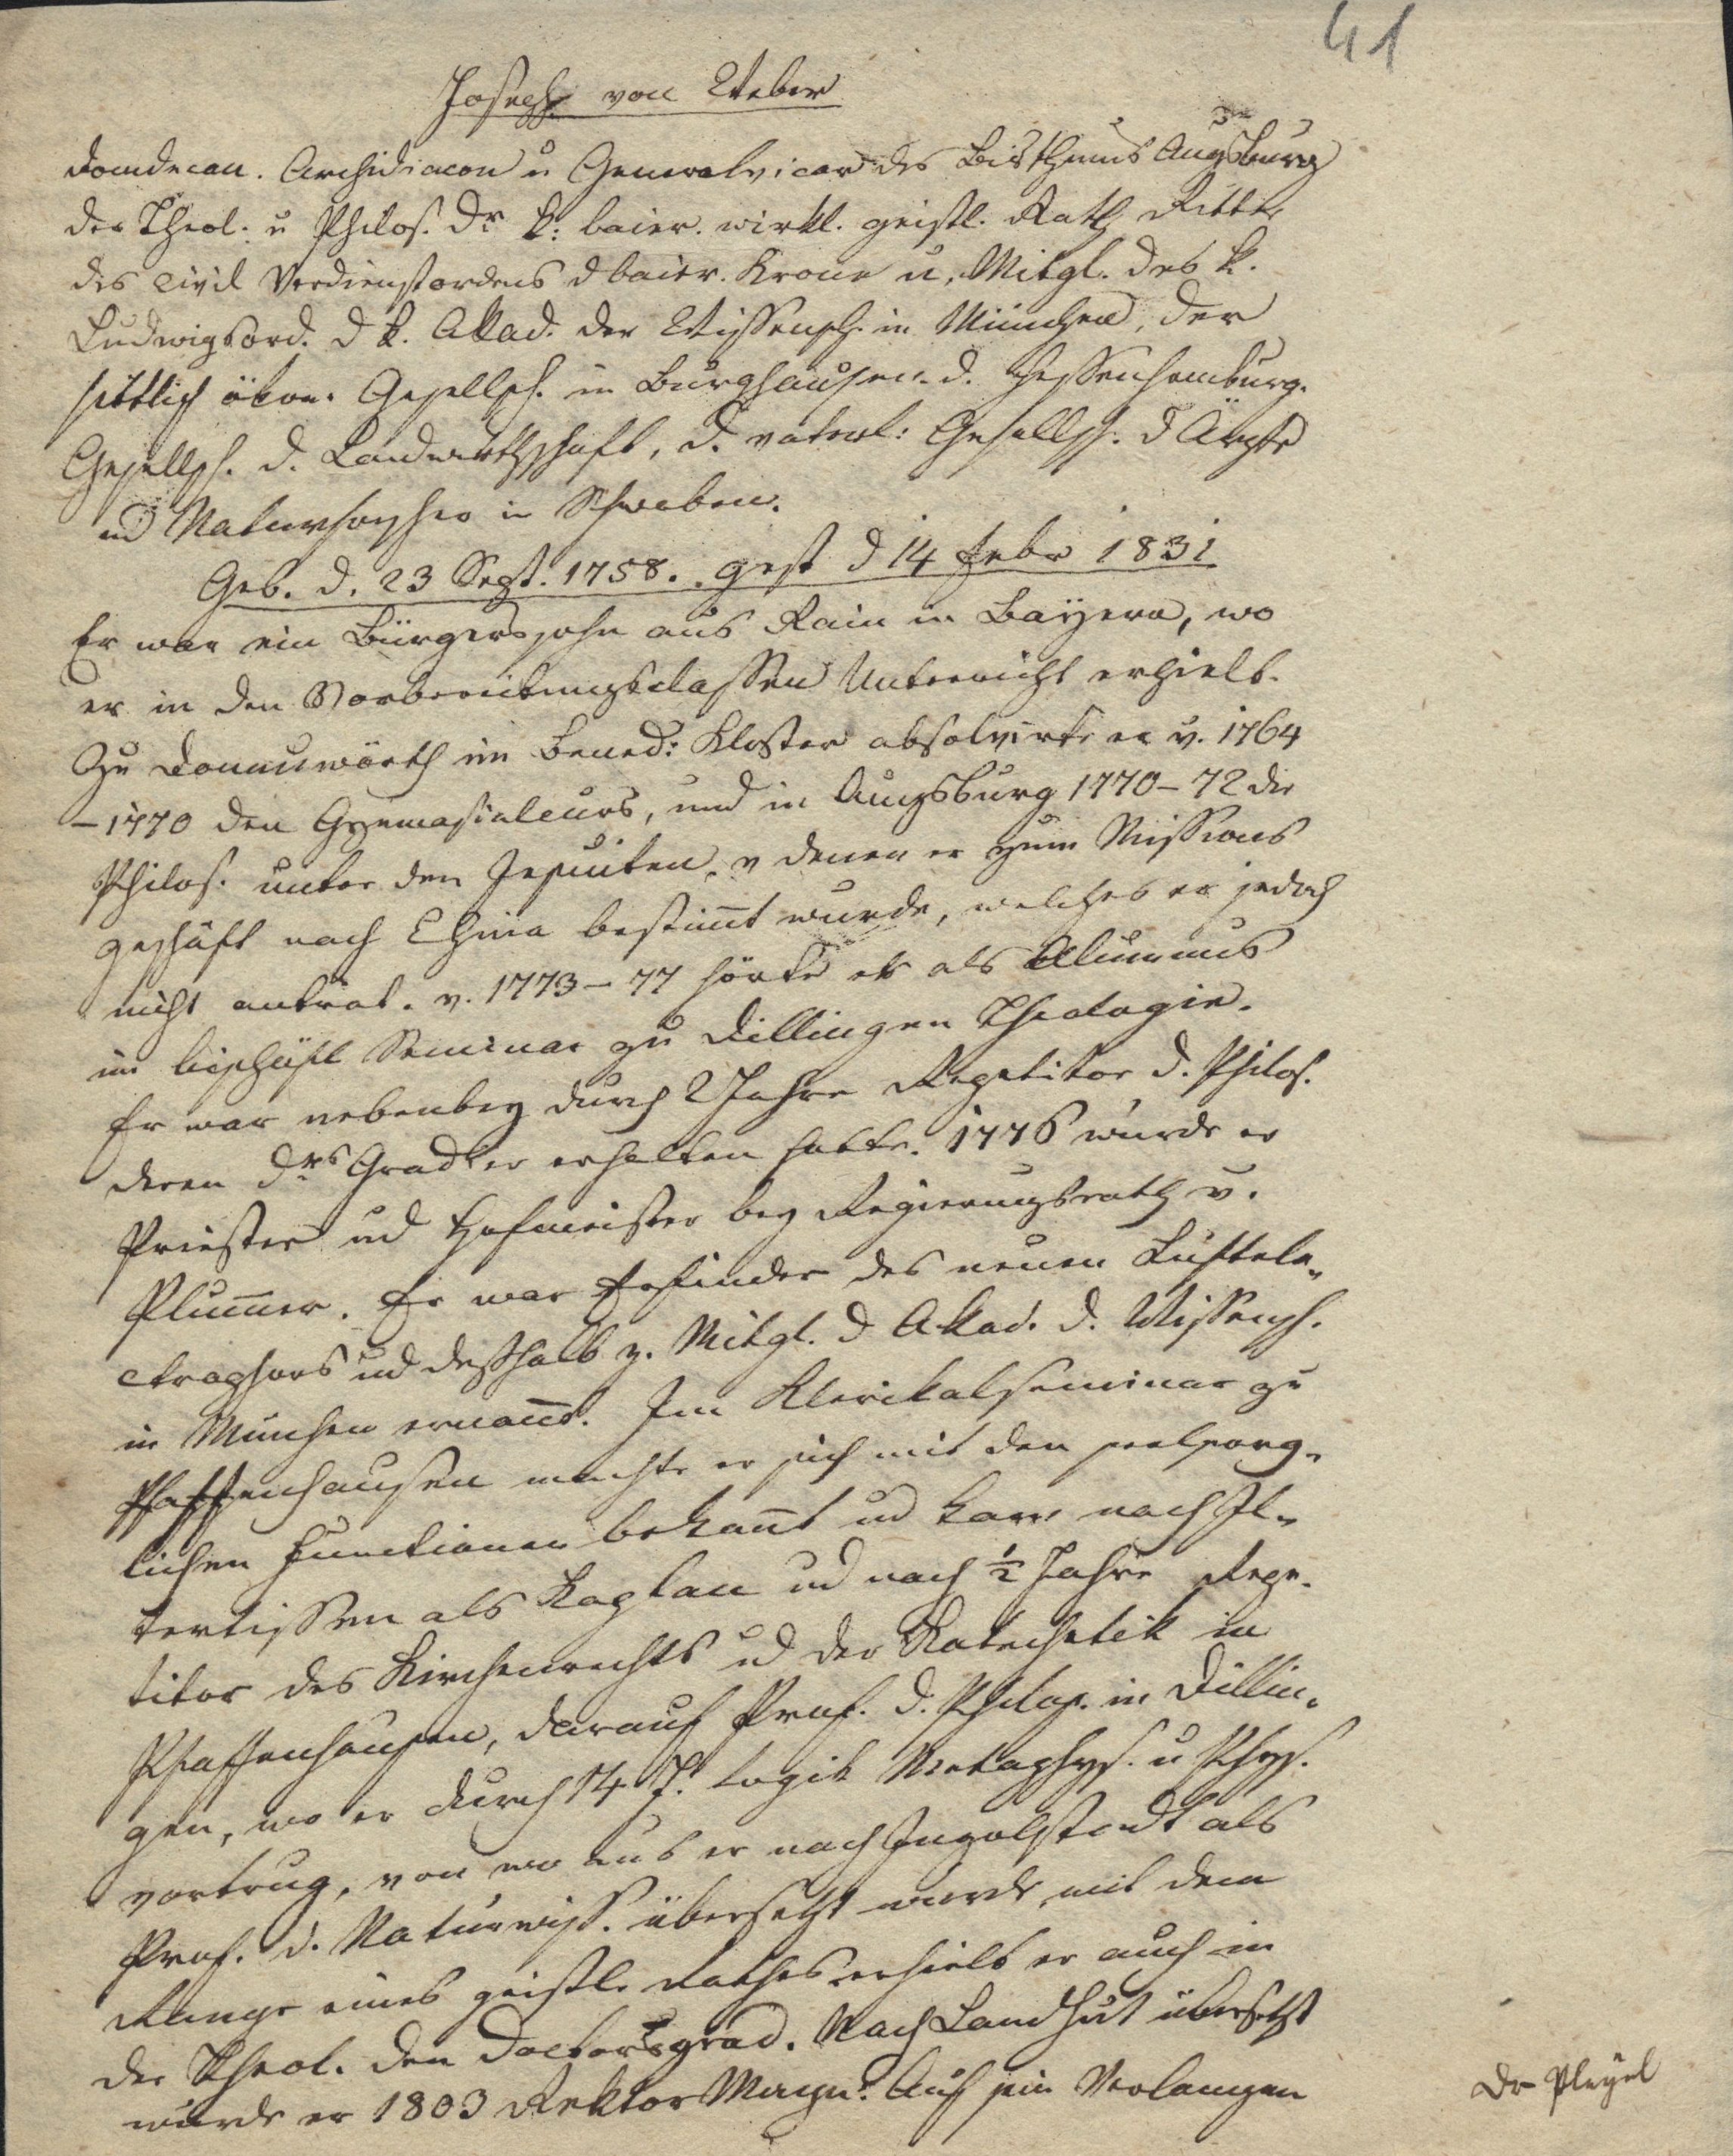 41
Joseph von Weber
Domdecan. Archidiacon u Generalvicar des Bisthums Augsburg
der Theol. u Philos. Dr k. baier. wirkl. geistl. Rath Ritter
des Civil Verdienstordens d baier. Krone u. Mitgl. des k.
Ludwigsord. d k. Akad. der Wissensch. in München, der
sittlich ökon. Gesellsch. in Burghausen. d. Hessenhomburg.
Gesellsch. d. Landwirthschaft, d. vaterl: Gesellsch. d Ärzte
und Naturforscher in Schwaben.
Geb. d. 23 Sept. 1758. gest d 14 Febr 1831
Er war ein Bürgerssohn aus Rain in Bayern, wo
er in den Vorbereitungsclassen Unterricht erhielt.
Zu Donauwörth im Bened: Kloster absolvirte er v. 1764
–1770 den Gymnasialcurs, und in Augsburg 1770–72 die
Philos. unter den Jesuiten, v denen er zum Missions
geschäft nach China bestimt wurde, welches er jedoch
nicht antrat. v. 1773–77 hörte er als Alumnus
im bischöfl Seminar zu Dillingen Theologie.
Er war nebenbey durch 2 Jahre Repetitor d. Philos.
deren Drs Grad er erhalten hatte. 1776 wurde er
Priester und Hofmeister bey Regierungsrath v.
Plummer. Er war Erfinder des neuen Luftele„
ctrophors und deßhalb z. Mitgl. d Akad. d. Wissensch.
in München ernannt. Im Klerickalseminar zu
Pfaffenhausen machte er sich mit den seelsorg„
lichen Functionen bekannt und kam nach Il„
lertissen als Kaplan und nach ½ Jahre Repe„
titor des Kirchenrechts und der Katechetik in
Pfaffenhausen, darauf Prof. d. Philos. in Dillin„
gen, wo er durch 14 J. Logik Metaphys. u Phys.
vortrug, von wo aus er nach Ingolstadt als
Prof. d. Naturwiss. übersetzt wurde, mit dem
Range eines geistl. Rathes erhielt er auch in
der Theol. den Doctorsgrad. Nach Landshut übersetzt
wurde er 1803 Rektor Magn. Auf sein Verlangen
Dr Pleyel